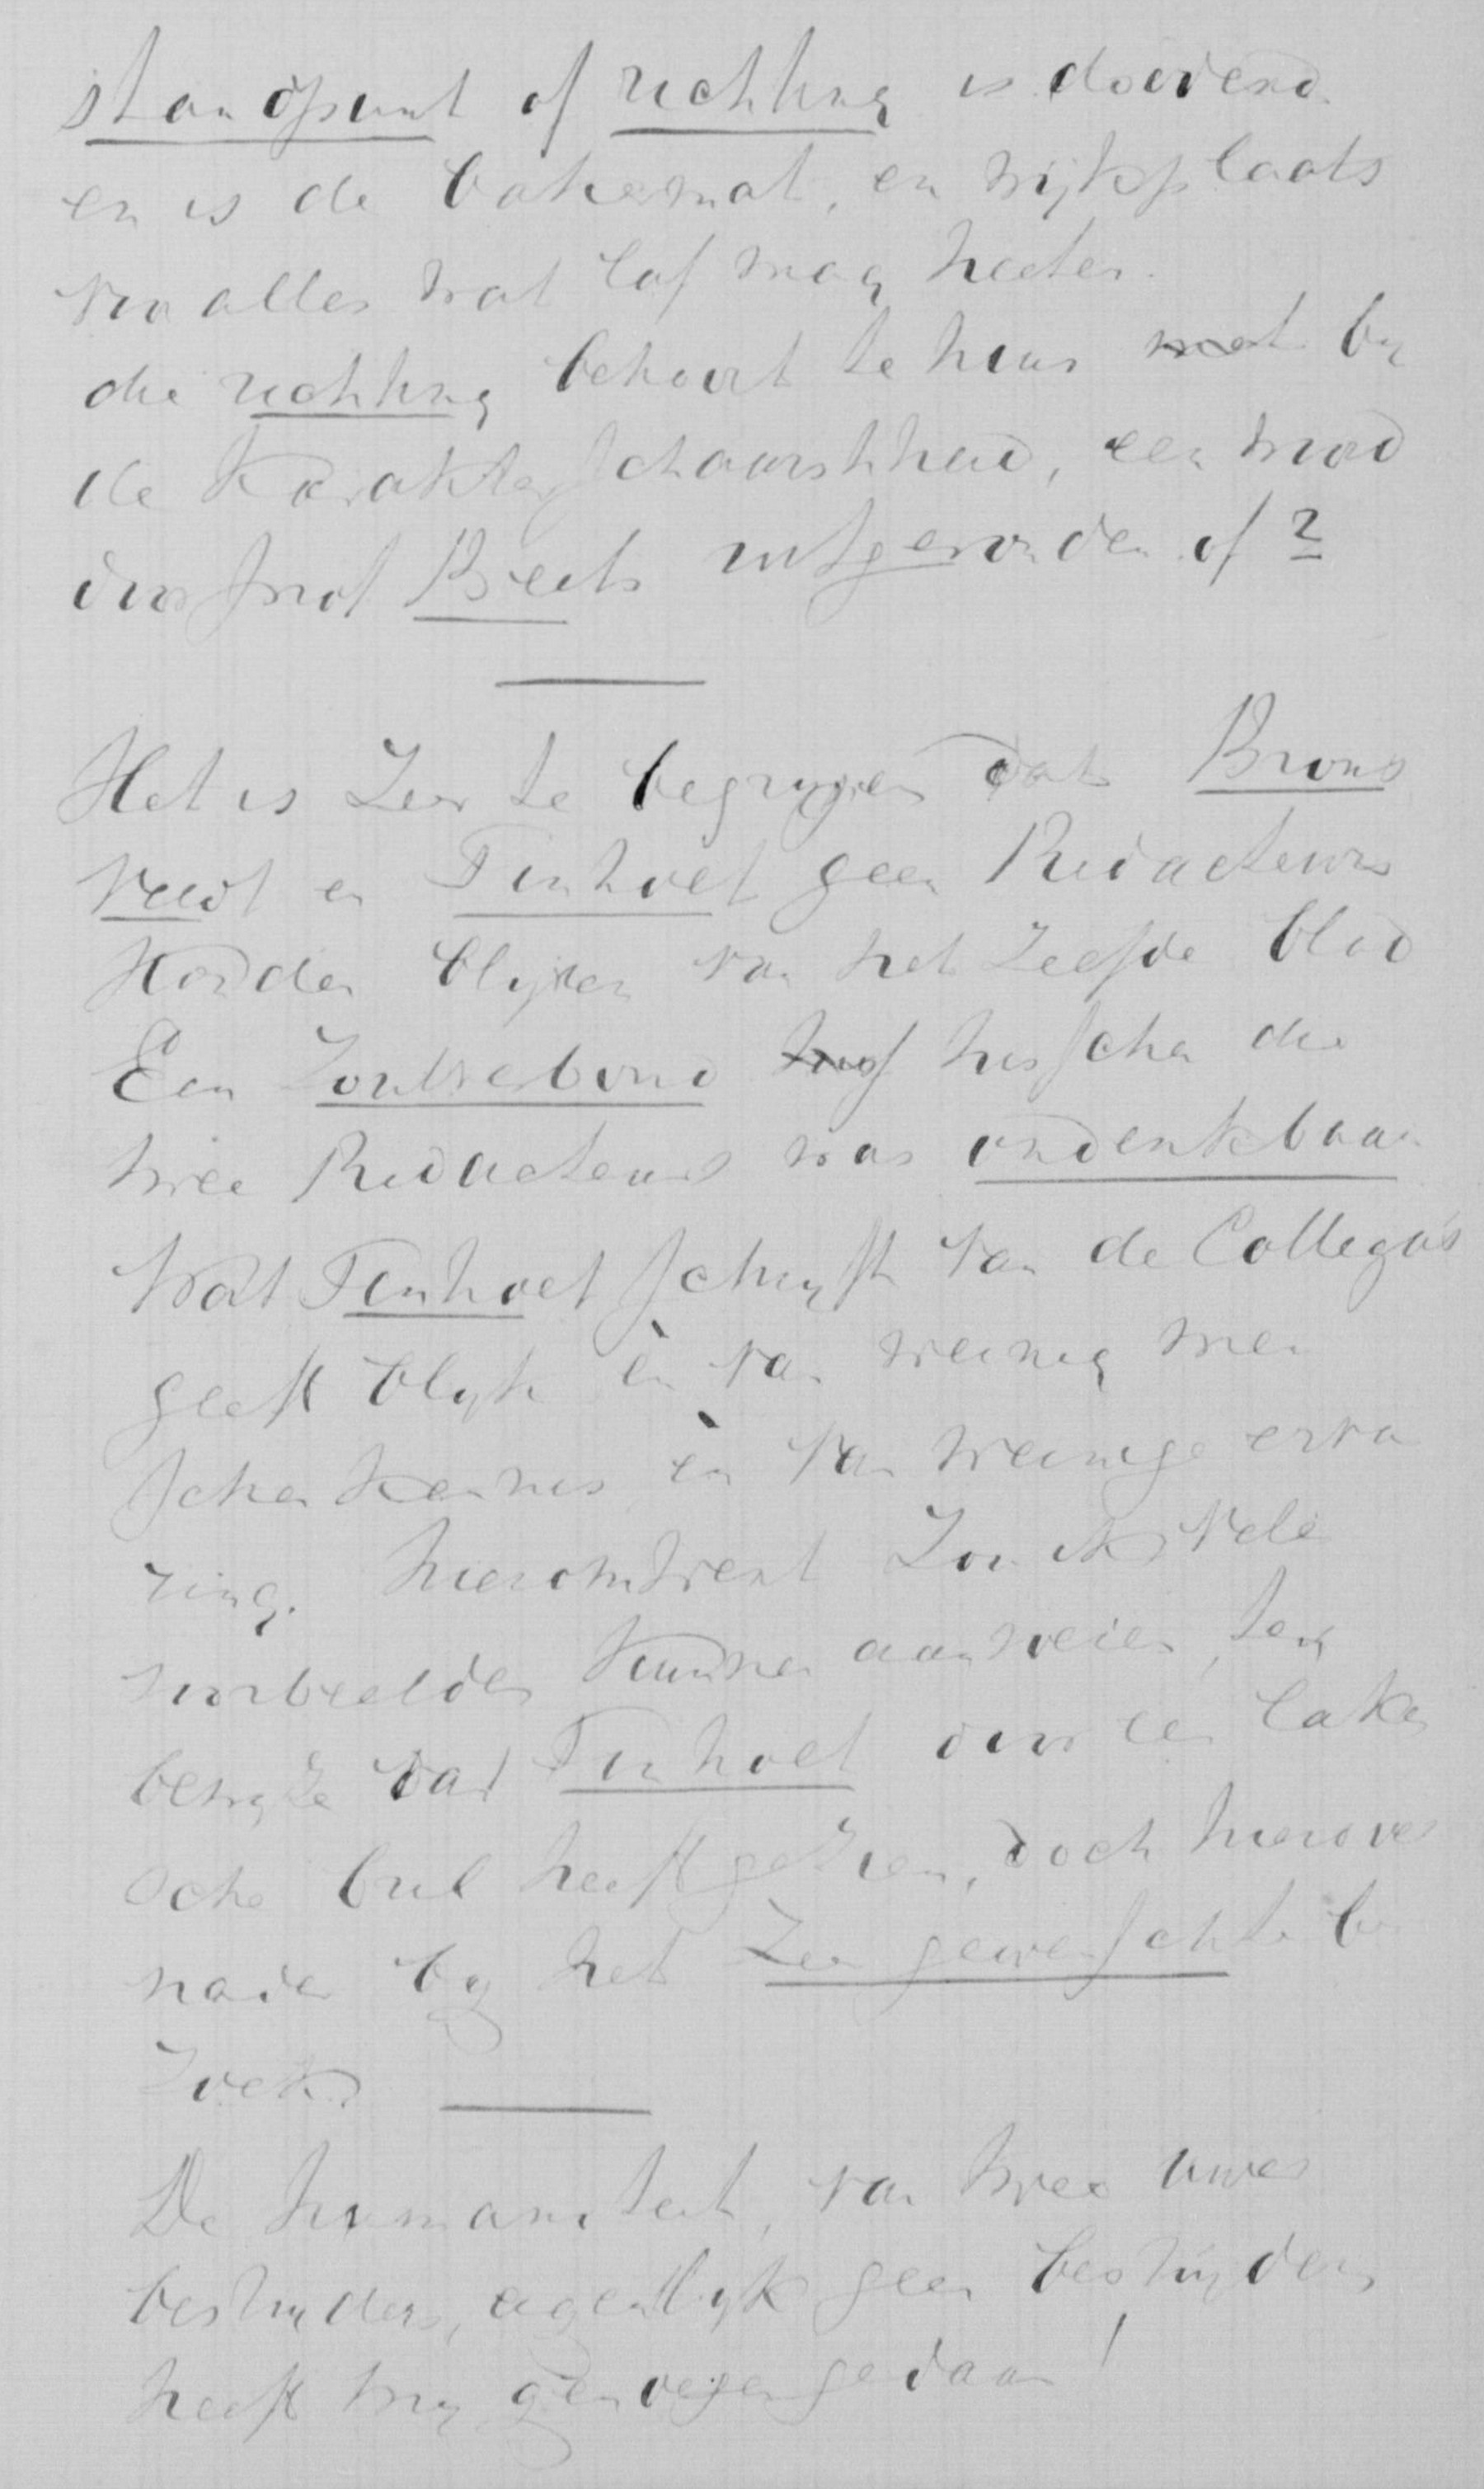 standpunt of richting is doodend
en is de bakermat, en wijkplaats
van alles wat laf mag heeten.
die richting behoort te huis met by
de Karakterschaarschheid, een woord
door Prof Beets uitgevonden of ?
Het is zeer te begrypen dat Brons
veldt en Tinholt geen Redacteurs
konden blijven van het zelfde blad
Een Zoutverbond tusschen die
twee Redacteurs was ondenkbaar
Wat Tinholt schryft van de Collega's
geeft blyk èn van weinig men
schenkennis èn van weinige erva
ring. hieromtrent zou ik vele
voorbeelden kunnen aanvoeren, ten
bewyze dat Tinholt door een laken
sche bril heeft gezien, doch hierover
nader by het zeer gewenschte be
zoek.
De humaniteit, van twee uwer
bestryders, eigenlyk geen bestryders
heeft my genoegen gedaan!